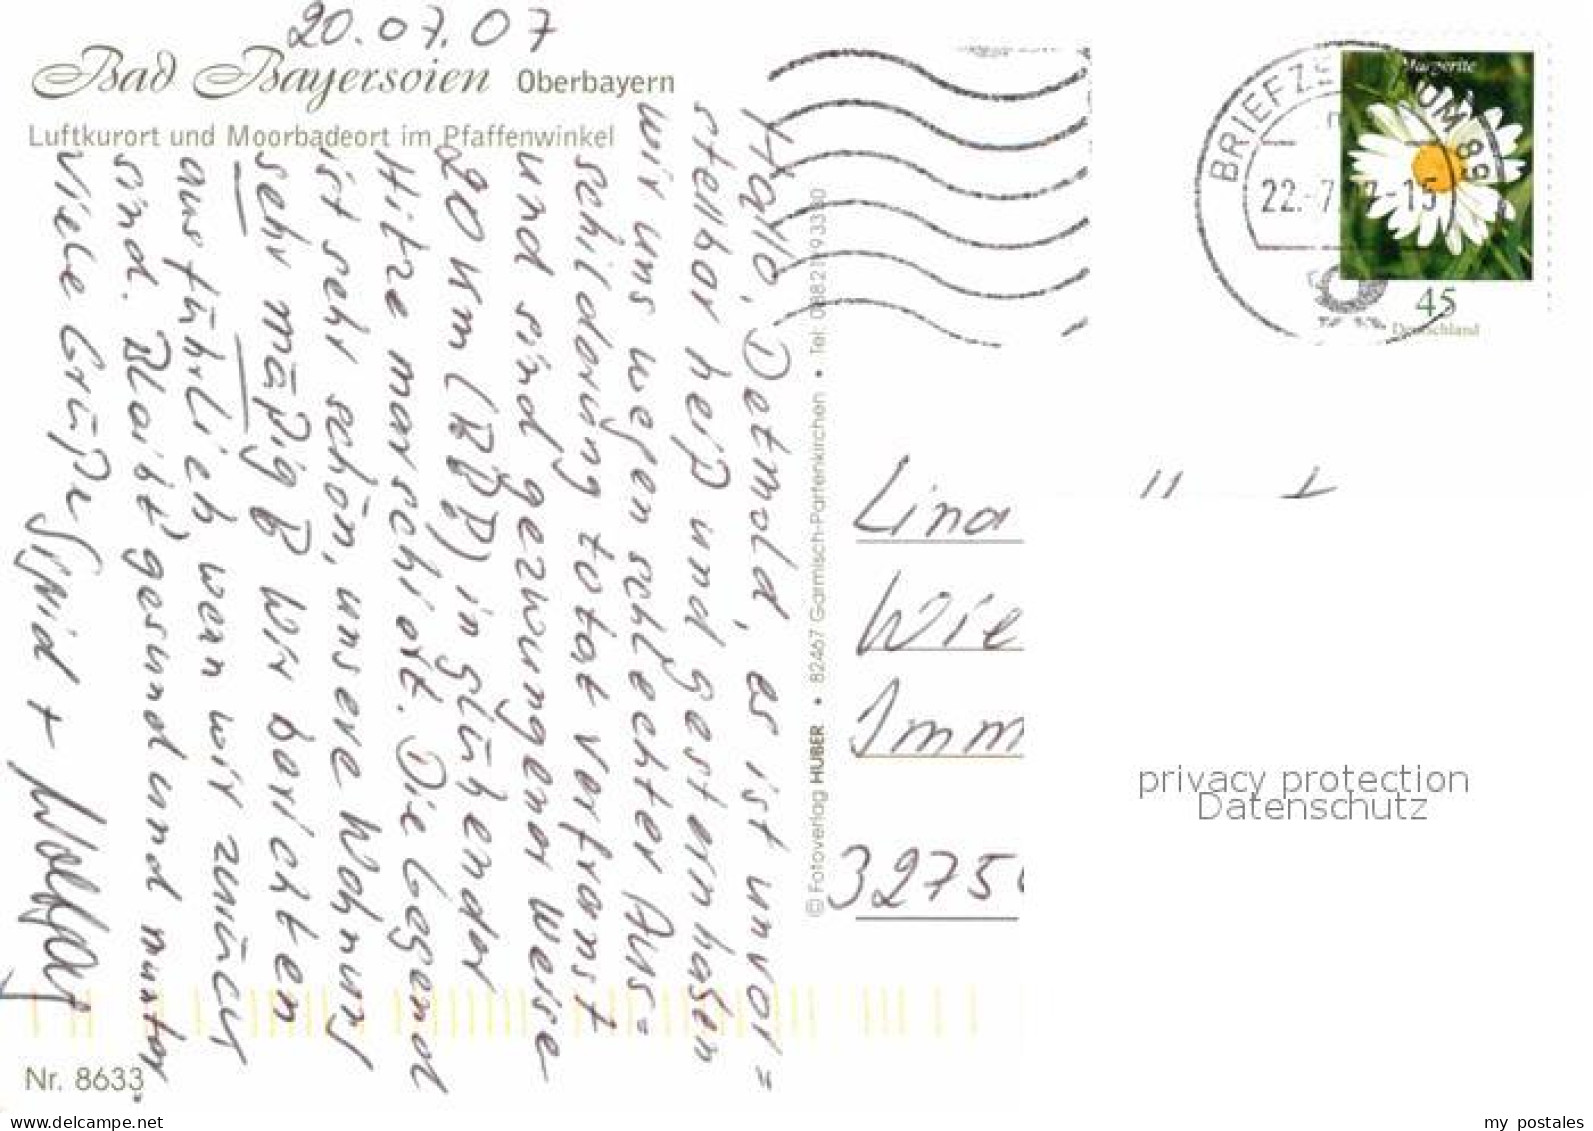 20.07.07
Bad Bayersoien Oberbayern
Luftkurort und Moorbadeort im Pfaffenwinkel
Hallo, Detmold, es ist unvor=
stellbar heiß und gestern haben
wir uns wegen schlechter Aus=
schilderung total verfranst
und sind gezwungener weise
20 km (!) in glühender
Hitze marschiert. Die Gegend
ist sehr schön, unsere Wohnung
sehr mäßig Wir berichten
ausführlich, wenn wir zurück
sind. Bleibt gesund und munter
Viele Grüße Sigrid + Wolfgang
Nr. 8633
© Fotoverlag HUBER • 82467 Garmisch-Partenkirchen • Tel: 08821/93330
BRIEFZENTRUM 86
22.-7.07-15
Margerite
45
Deutschland
Lina
Wie
Imm
32756
privacy protection
Datenschutz
www.delcampe.net
my_postales